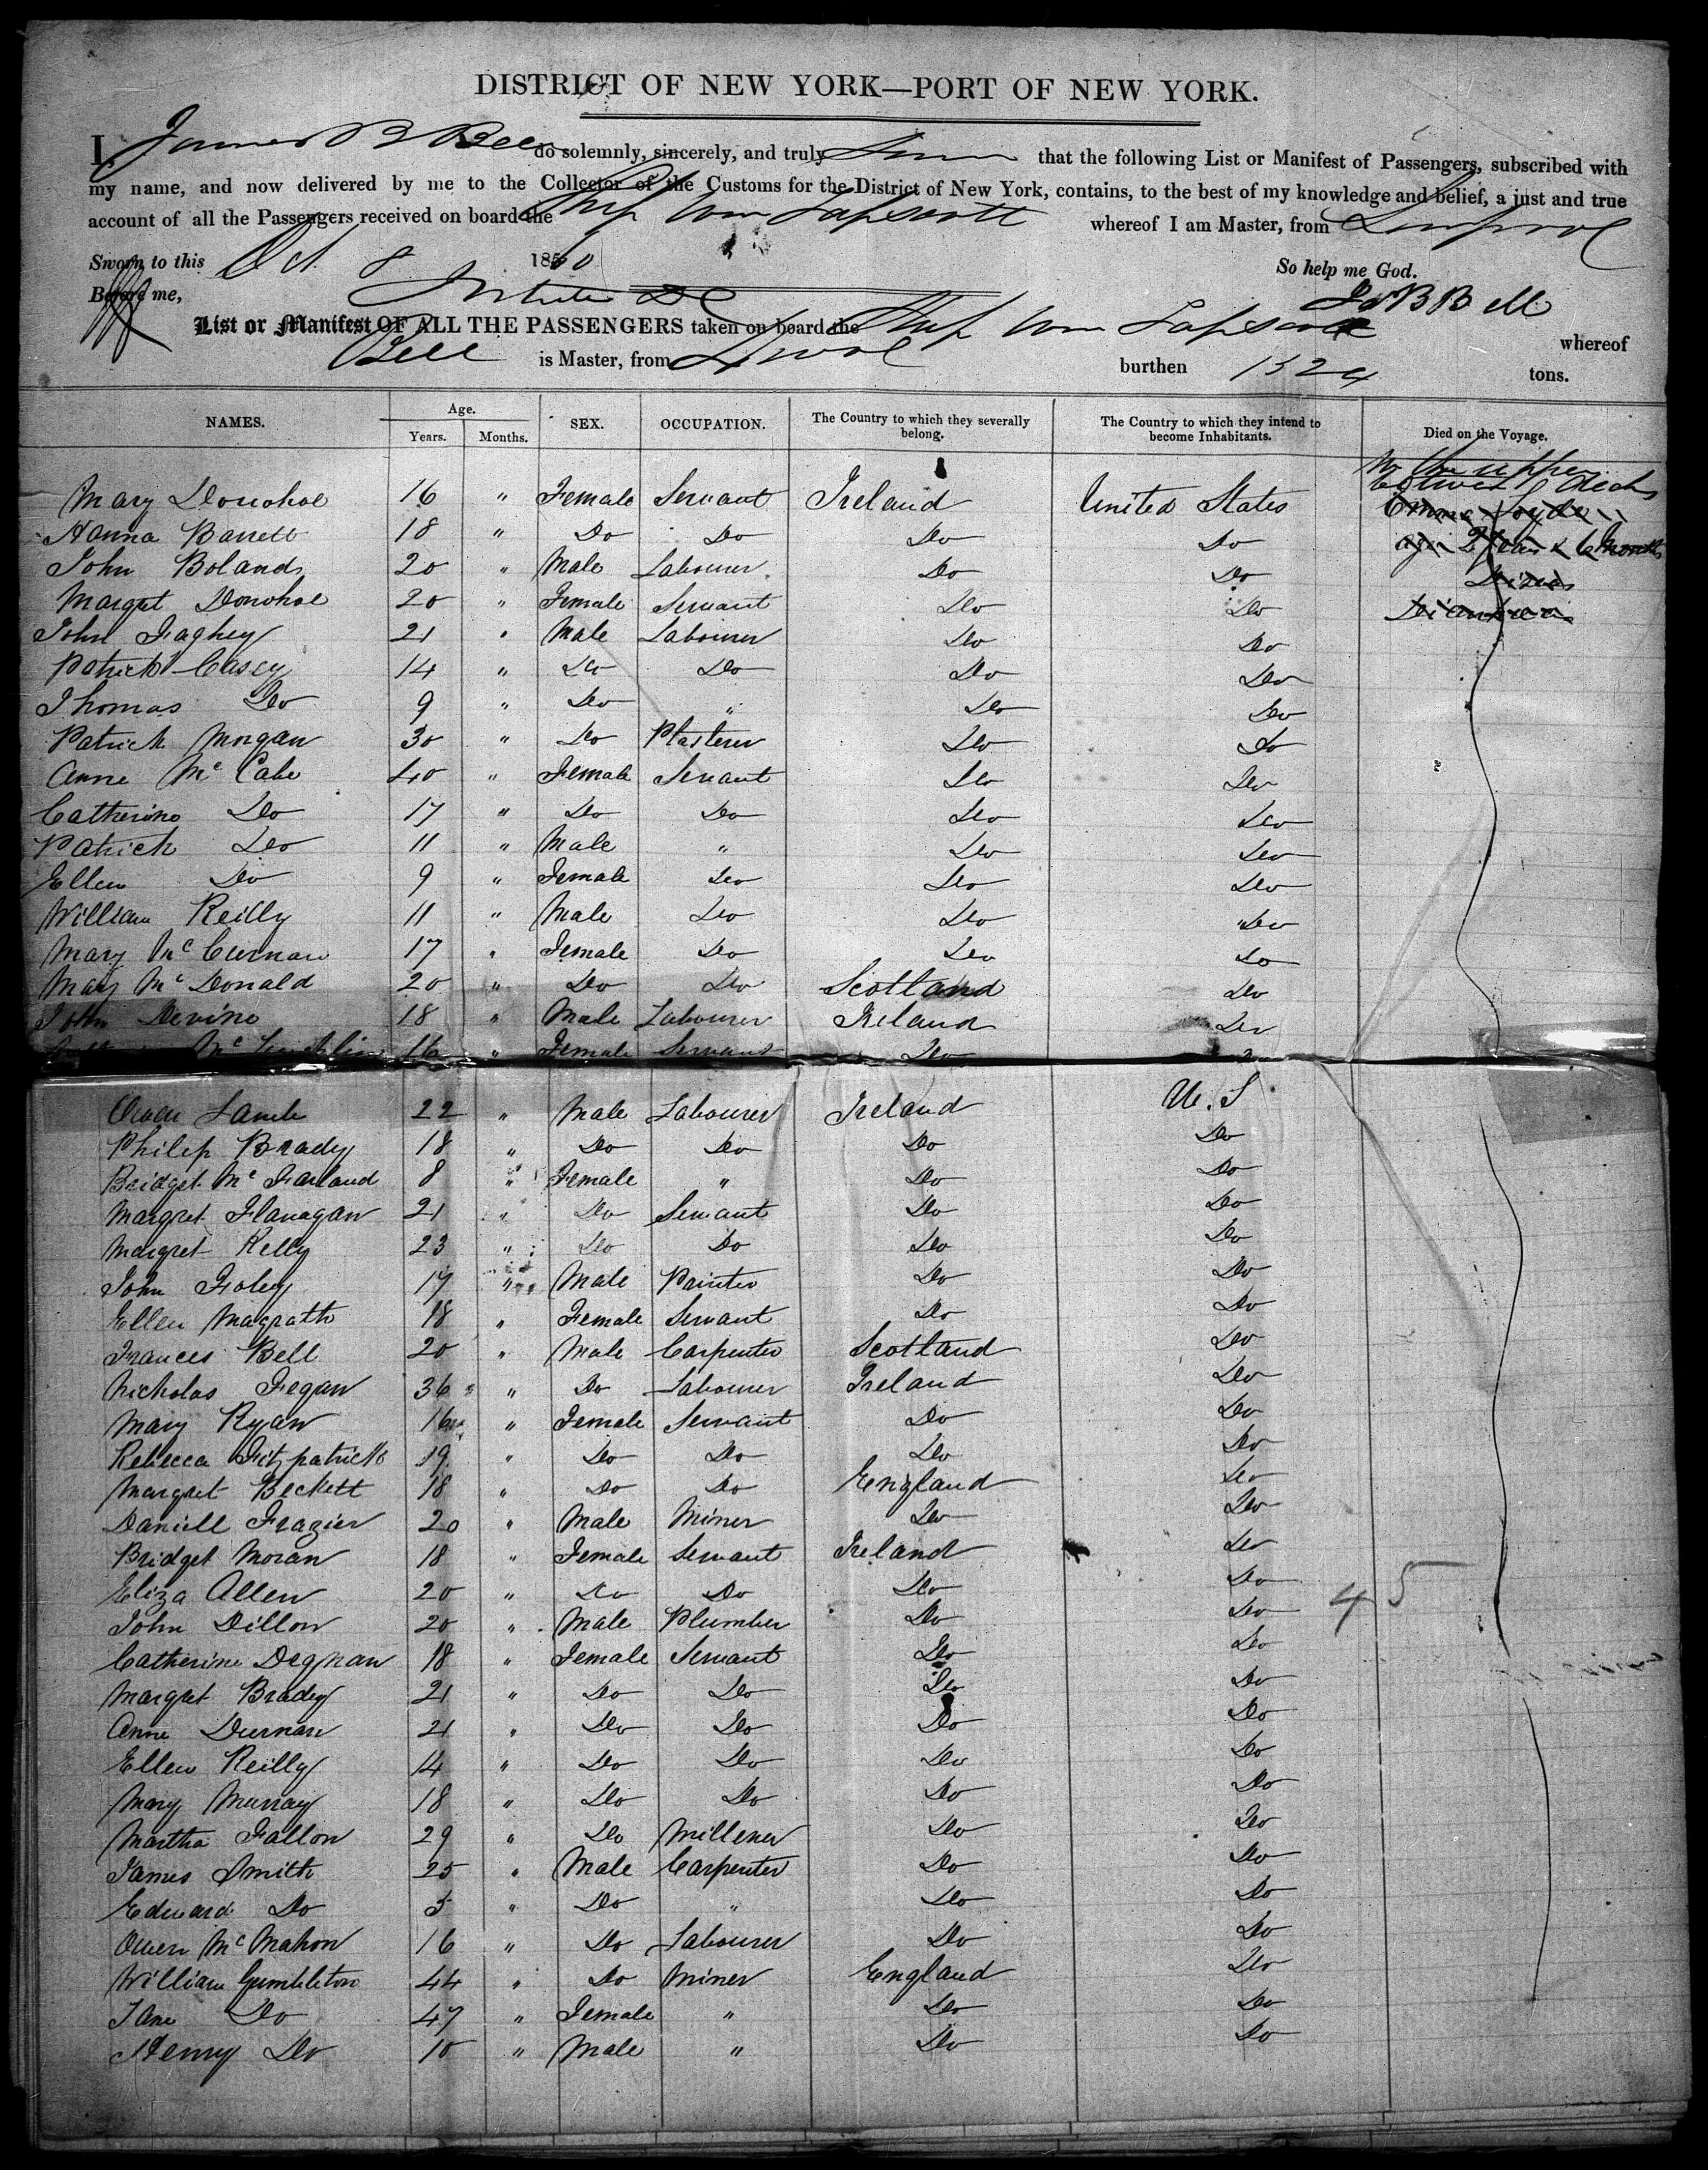 DISTRICT OF NEW YORK—PORT OF NEW YORK.
I, James B Bell do solemnly, sincerely, and truly that the following List or Manifest of Passengers, subscribed with
my name, and now delivered by me to the Collector of the Customs for the District of New York, contains, to the best of my knowledge and belief, a just and true
account of all the Passengers received on board the Ship Wm Tapscott whereof I am Master, from Liverpool
Sworn to this Oct 8 1860 So help me God.
Before me, Js B Bell
List or Manifest OF ALL THE PASSENGERS taken on board the Ship Wm Tapscott whereof
Bell is Master, from L'pool burthen 1524 tons.
NAMES. Age. Years. Months. SEX. OCCUPATION. The Country to which they severally belong. The Country to which they intend to become Inhabitants. Died on the Voyage.
In the upper
between decks
Mary Donohoe 16 " Female Servant Ireland United States Emma
Hanna Barrett 18 " Do Do Do Do age 2 years & 6 Months
John Boland 20 " Male Labourer Do Do Disease
Margret Donohoe 20 " Female Servant Do Do Diarrhea
John Faghey 21 " Male Labourer Do Do
Patrick Casey 14 " Do Do Do Do
Thomas Do 9 " Do " Do Do
Patrick Morgan 30 " Do Plasterer Do Do
Anne McCabe 40 " Female Servant Do Do
Catherine Do 17 " Do Do Do Do
Patrick Do 11 " Male " Do Do
Ellen Do 9 " Female Do Do Do
William Reilly 11 " Male Do Do Do
Mary McCurnan 17 " Female Do Do Do
Mary McDonald 20 " Do Do Scotland Do
John Devine 18 " Male Labourer Ireland Do
16 " Female Servant Do
Owen Lamb 22 " Male Labourer Ireland U.S
Philip Brady 18 " Do Do Do Do
Bridget McFarland 8 " Female " Do Do
Margret Flanagan 21 " Do Servant Do Do
Margret Kelly 23 " Do Do Do Do
John Foley 17 " Male Painter Do Do
Ellen Magrath 18 " Female Servant Do Do
Frances Bell 20 " Male Carpenter Scotland Do
Nicholas Fegan 36 " Do Labourer Ireland Do
Mary Ryan 16 " Female Servant Do Do
Rebecca Fitzpatrick 19 " Do Do Do Do
Margret Beckett 18 " Do Do England Do
Daniell Frazier 20 " Male Miner Do Do
Bridget Moran 18 " Female Servant Ireland Do
Eliza Allen 20 " Do Do Do Do 45
John Dillon 20 " Male Plumber Do Do
Catherine Degnan 18 " Female Servant Do Do
Margret Brady 21 " Do Do Do Do
Anne Durnan 21 " Do Do Do Do
Ellen Reilly 14 " Do Do Do Do
Mary Murray 18 " Do Do Do Do
Martha Fallon 29 " Do Millener Do Do
James Smith 25 " Male Carpenter Do Do
Edward Do 5 " Do " Do Do
Owen McMahon 16 " Do Labourer Do Do
William Gumbleton 44 " Do Miner England Do
Jane Do 47 " Female " Do Do
Henry Do 10 " Male " Do Do